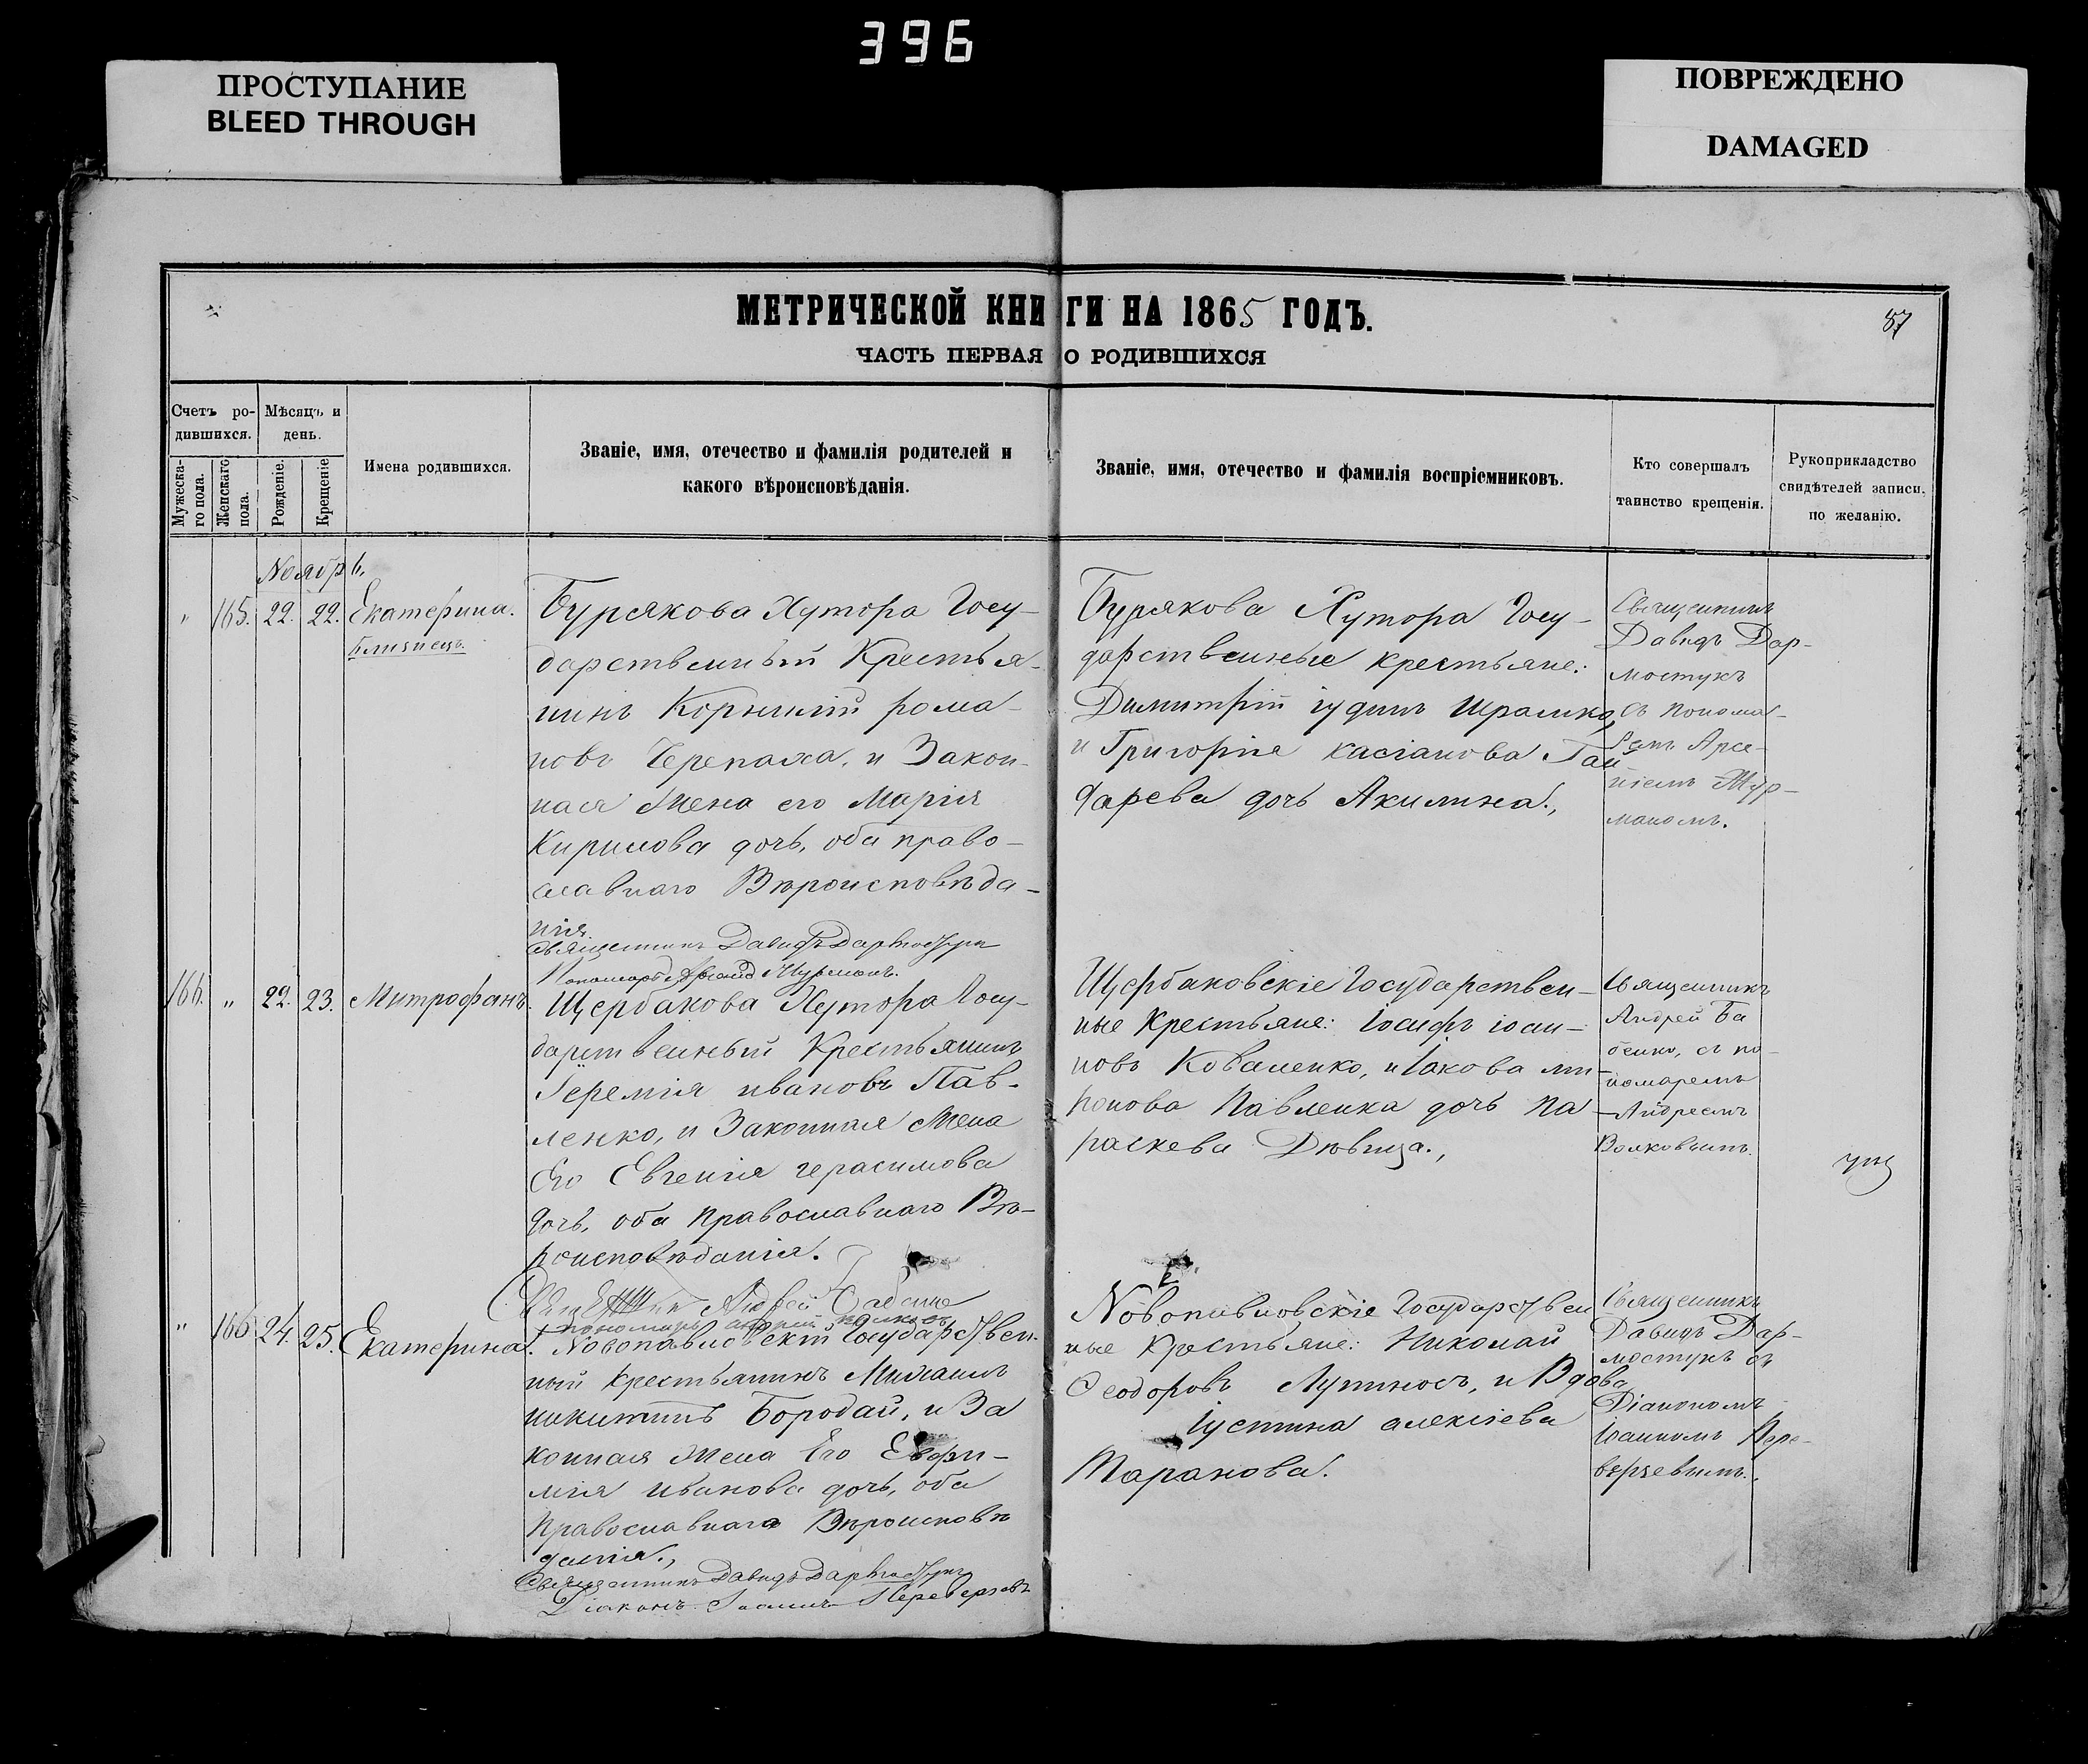 396
ПРОСТУПАНИЕ
BLEED THROUGH
ПОВРЕЖДЕНО
DAMAGED
МЕТРИЧЕСКОЙ КНИГИ НА 1865 ГОДЪ.
87
ЧАСТЬ ПЕРВАЯ О РОДИВШИХСЯ
Счетъ ро-
дившихся.
Мужеска-
го пола.
Женскаго
пола.
Мѣсяцъ и
день.
Рожденіе.
Крещеніе
Имена родившихся.
Званіе, имя, отечество и фамилія родителей и
какого вѣроисповѣданія.
Званіе, имя, отечество и фамилія воспріемниковъ.
Кто совершалъ
таинство крещенія.
Рукоприкладство
свидѣтелей записи.
по желанію.
Ноябрь,
" 165. 22. 22. Екатерина.
близнецъ.
Бурсякова Хутора Госу-
дарственный Крестья-
нинъ Корнилій рома-
новъ Черепаха, и Закон-
ная Жена его Марія
Кирилова дочь, оба право-
славнаго Вѣроисповѣда-
нія.
Священникъ Давидъ Дармостукъ
Пономарь Арсеній Журманъ.
Бурякова Хутора Госу-
дарственные крестьяне:
Димитрій іудинъ Шрамко,
и Григорія касіанова Гай
дарева дочь Акилина.,
Священникъ
Давидъ Дар-
мостукъ
съ понома-
ремъ Арсе-
ніемъ Жур-
маномъ.
166. " 22. 23. Митрофанъ.
Щербакова Хутора Госу-
дарственный Крестьянинъ
Іеремія ивановъ Пав-
ленко, и Законная Жена
Его Евгенія герасимова
дочь, оба Православнаго Вѣ-
роисповѣданія.
Священникъ Андрей Бабенко
пономарь андрей
Щербаковскіе Государствен-
ные Крестьяне: Іосифъ іоан-
новъ Коваленко, и Іакова ми-
ронова Павленка дочь Па-
раскева Дѣвица.,
Священникъ
Андрей Ба
бенко, съ по-
номаремъ
Андреемъ
Волковымъ.
" 166 24. 25. Екатерина.
Новопавловскій Государствен-
ный Крестьянинъ Михаилъ
никитинъ Бородай, и За
конная Жена Его Евфи-
мія иванова дочь, оба
Православнаго Вѣроисповѣ
данія.,
Священникъ Давидъ Дармостукъ
Діаконъ Іоаннъ Переверзевъ
Новопавловскіе Государствен
ные Крестьяне: Николай
Ѳеодоровъ Лутиносъ, и Вдова
Іустина алексіева
Таранова.
Священникъ
Давидъ Дар-
мостукъ съ
Діакономъ
Іоанномъ Пере-
верзевымъ.